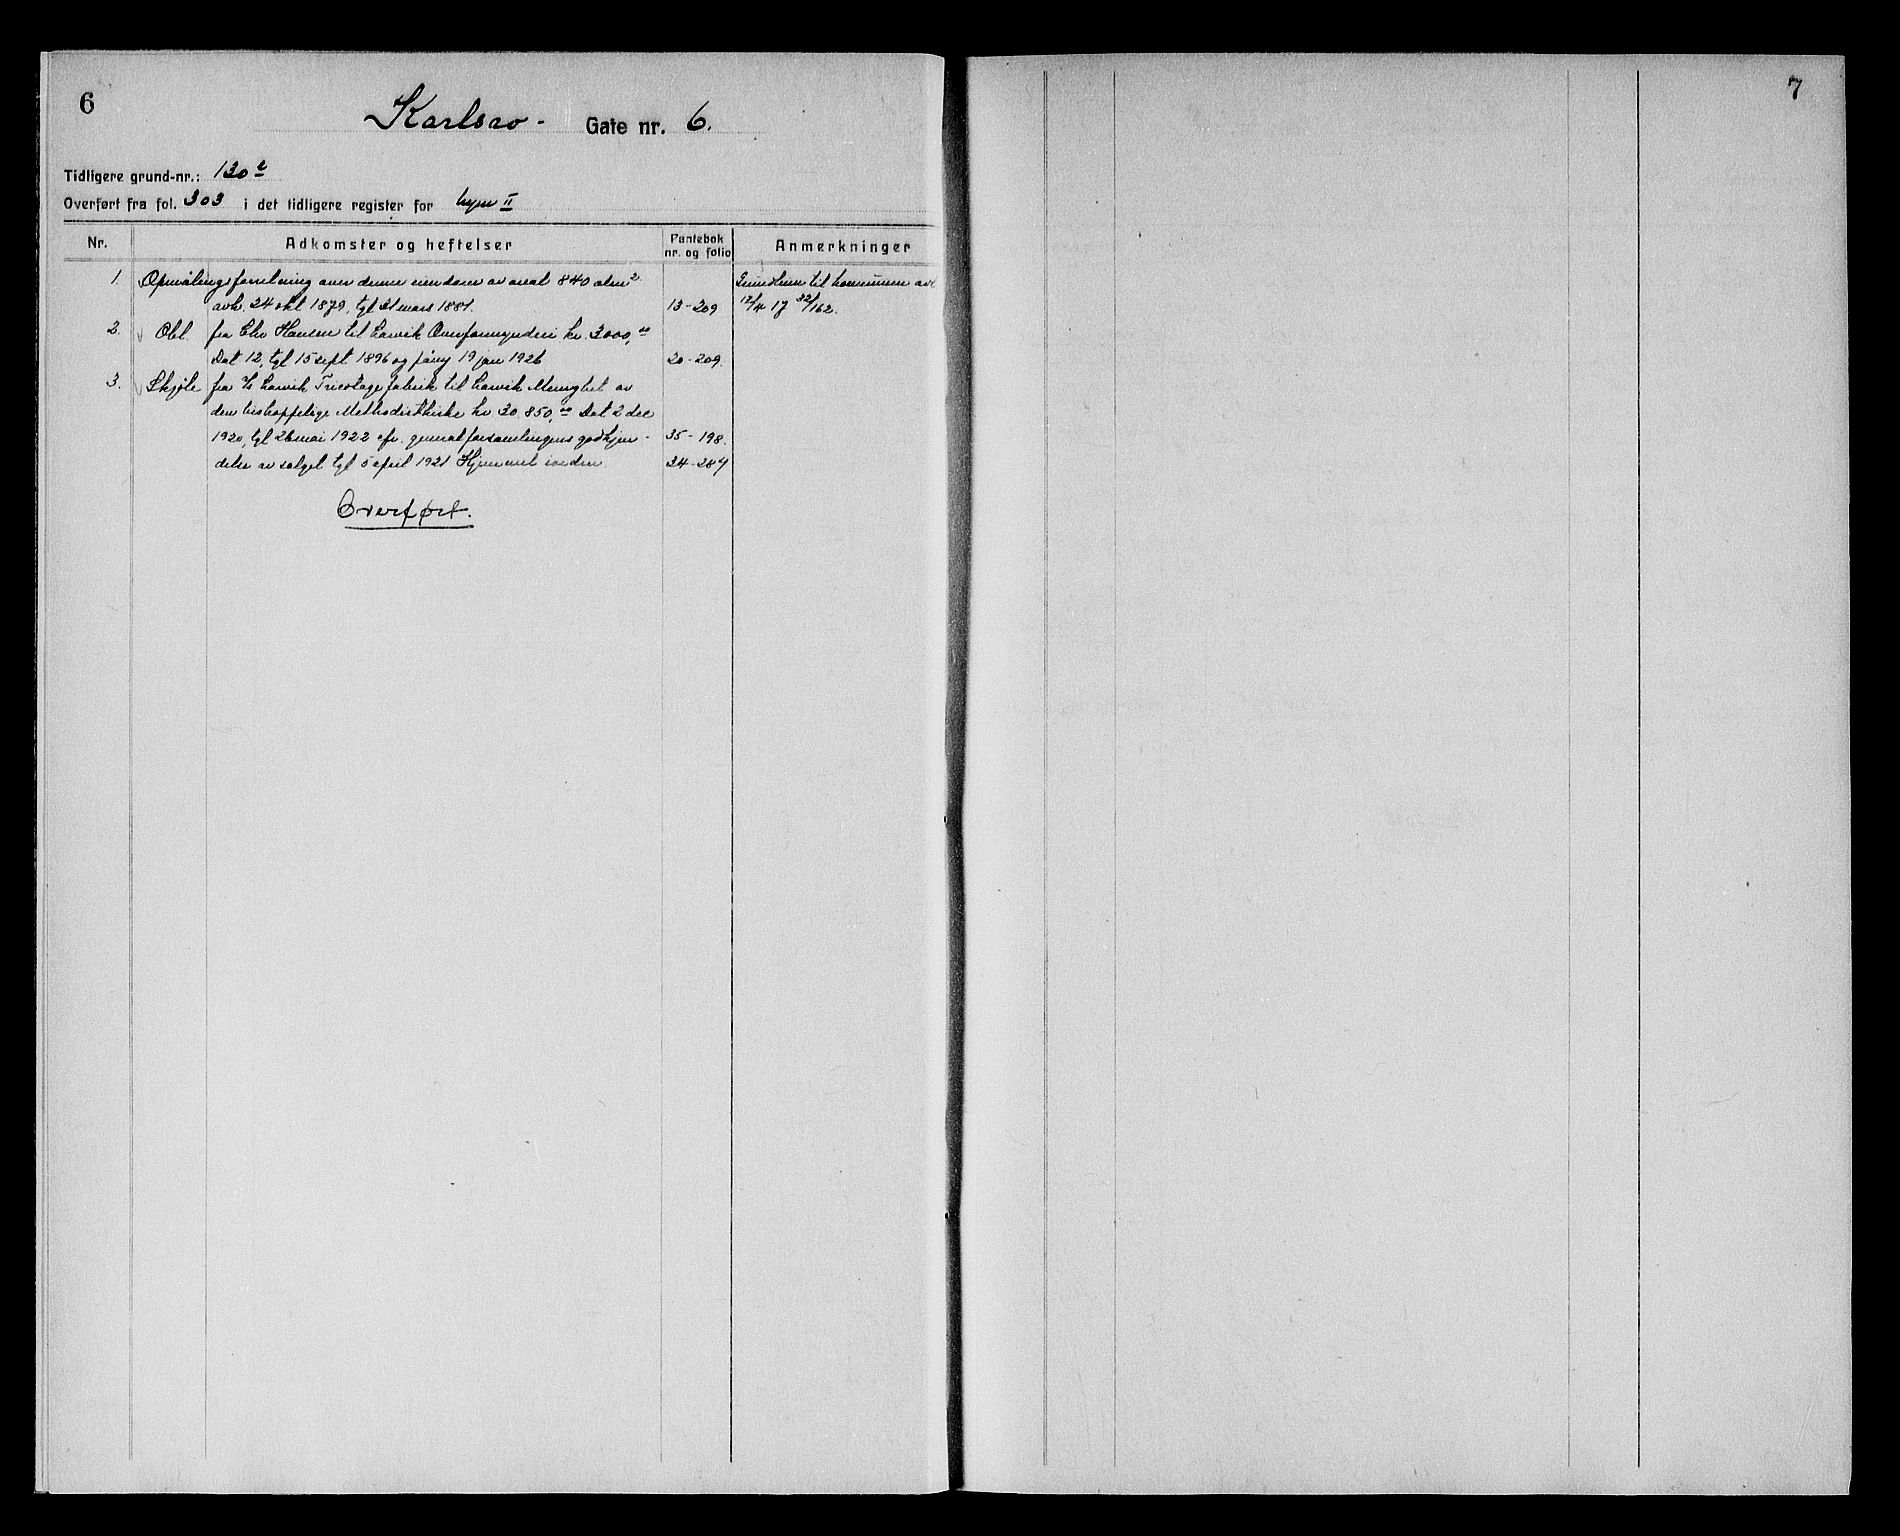 6
Karlsro - Gate nr. 6.
Tidligere grund-nr.: 130
Overført fra fol. 303 i det tidligere register for byen II
Nr.
Adkomster og heftelser
Pantebok nr. og folio
Anmerkninger
1. Opmålingsforretning over denne eiendom av areal 840 alen²
avh. 24 okt 1879, tgl 21 mars 1881. 13-209
Grundleien til kommunen avl.
12/4 17 32/162.
2. Obl. fra Chr Hansen til Larvik Overformynderi kr. 3000,00
Dat 12, tgl 15 sept 1896 og påny 19 jan 1926 20-209.
3. Skjøte fra Larvik Tricotagefabrik til Larvik Menighet av
den biskoppelige Methodistkirke kr. 30.850,00 Dat 2 dec
1920, tgl 26 mai 1922 cfr. generalforsamlingens godkjen- 35-198.
delse av salget tgl 5 april 1921 Hjemmel i orden 34-284
Overført.
7